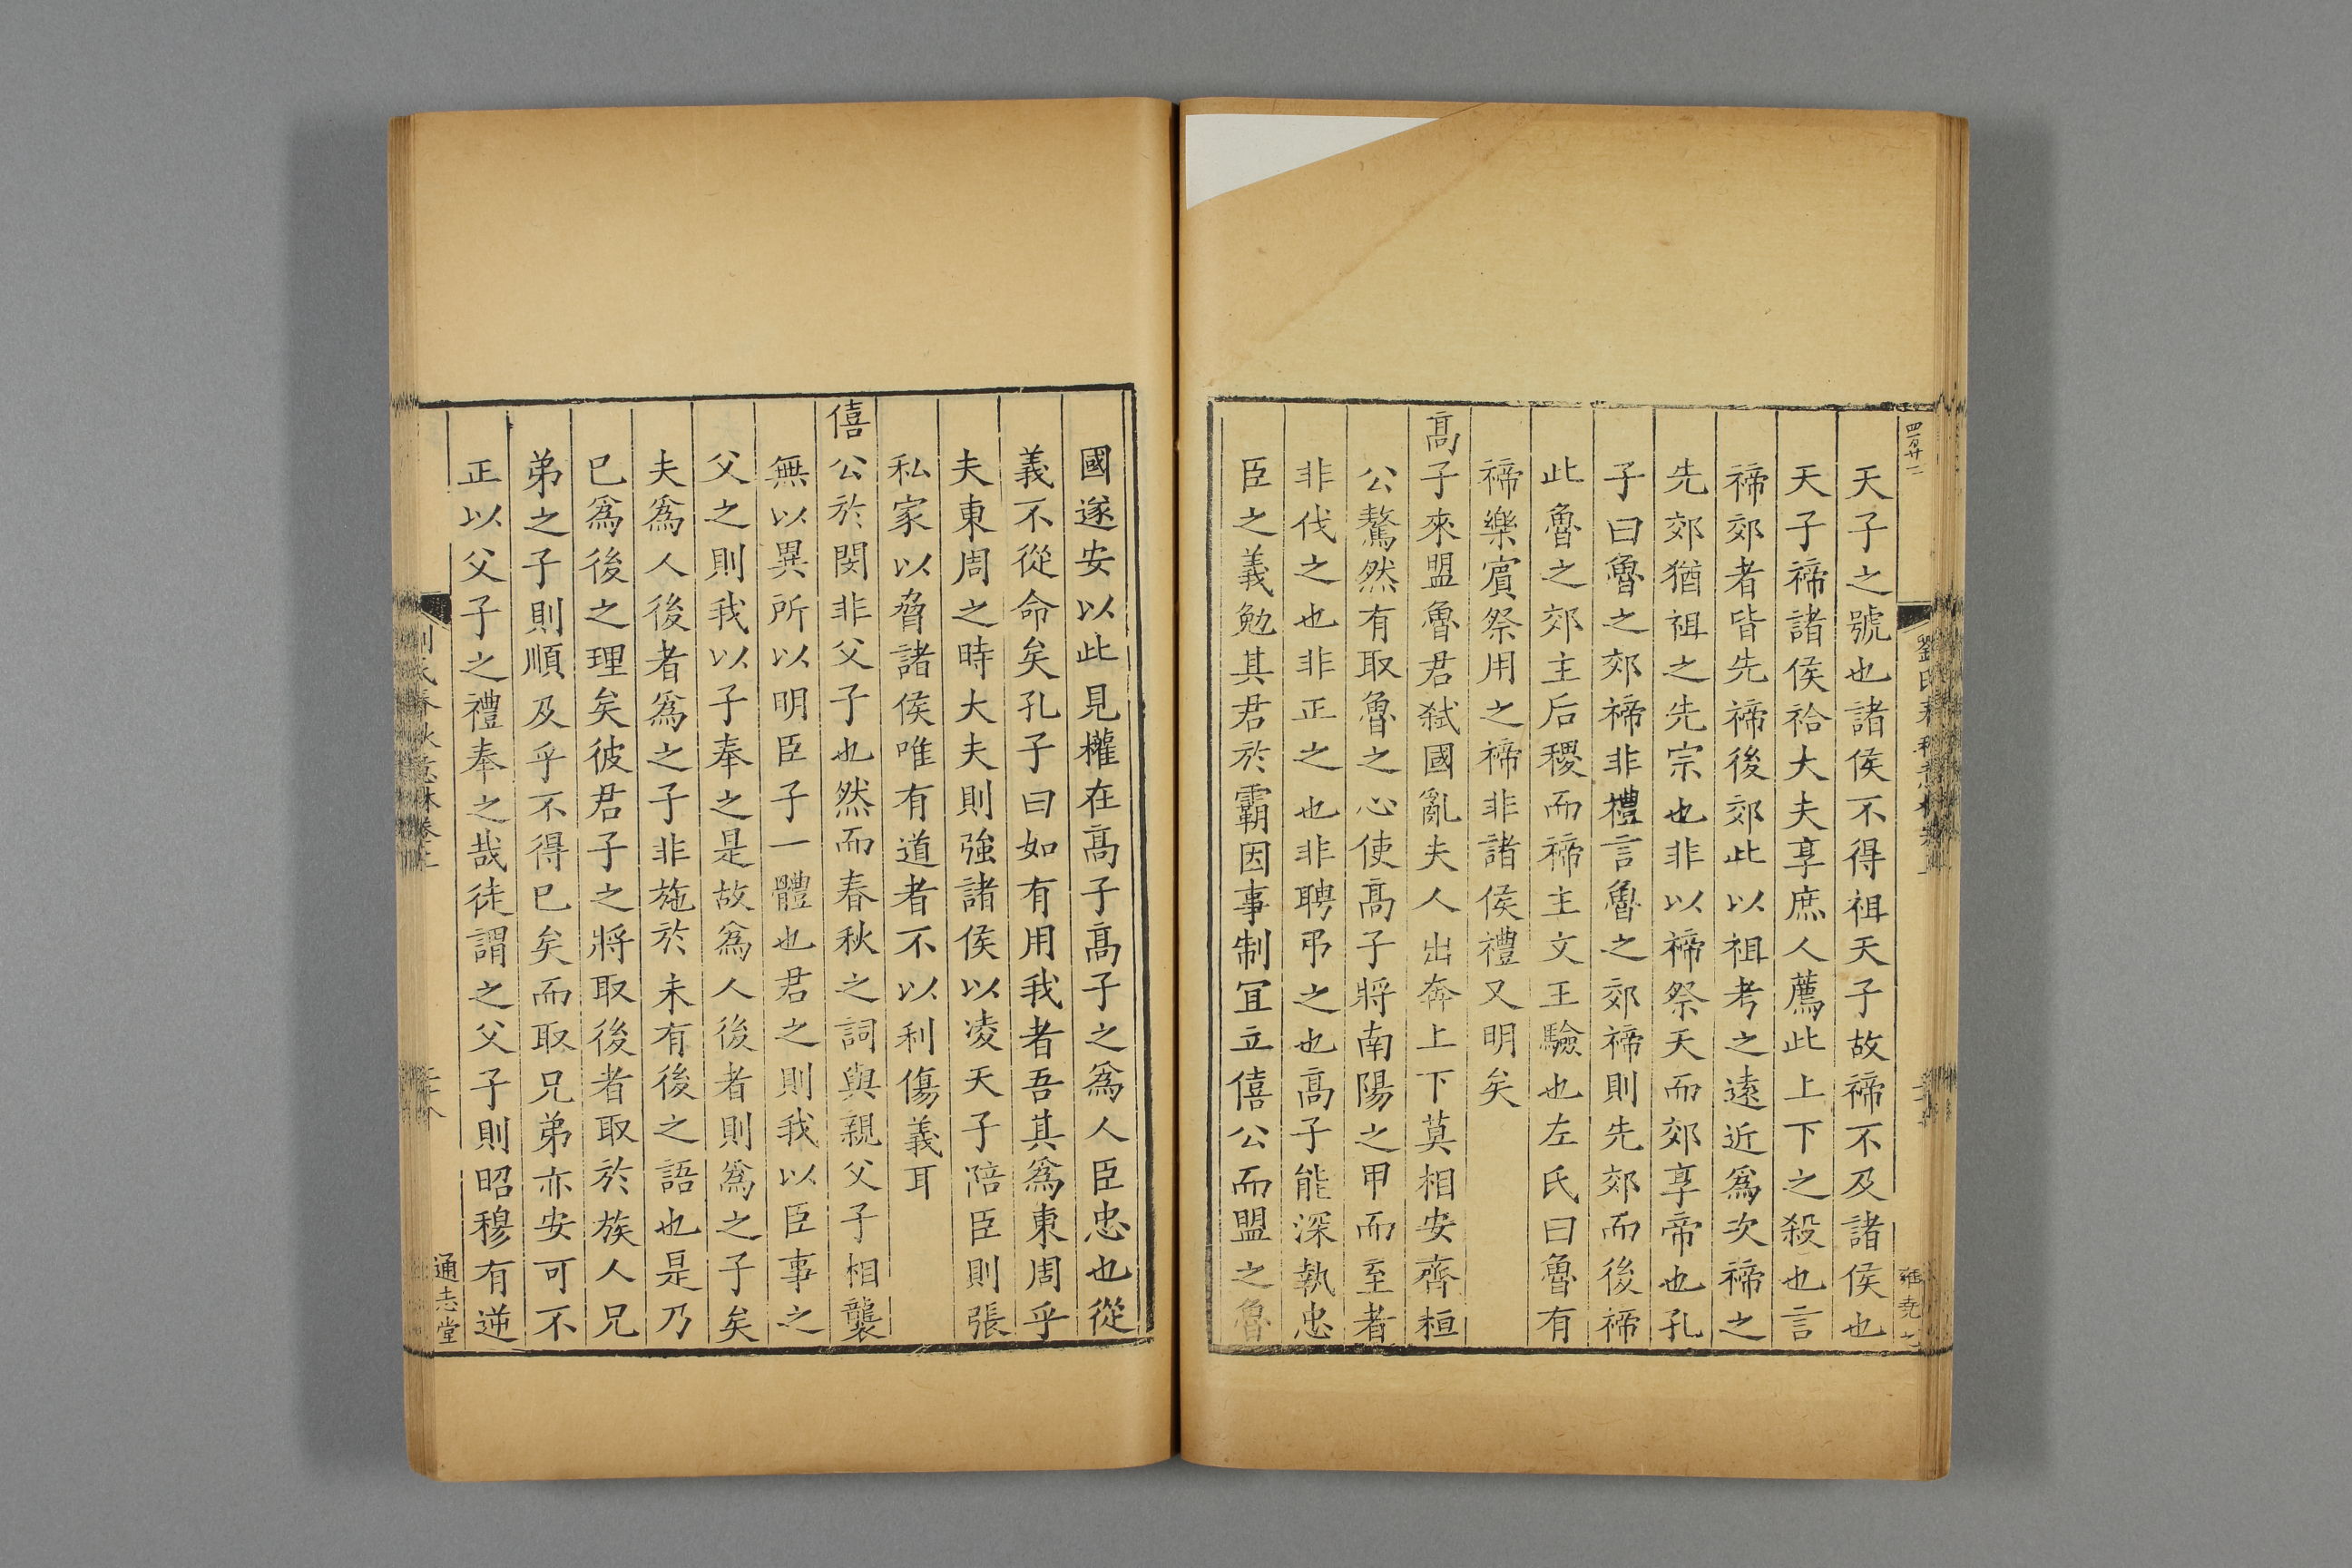 天子之號也諸侯不得祖天子故禘不及諸侯也
天子禘諸侯祫大夫享庶人薦此上下之殺也言
禘郊者皆先禘後郊此以祖考之遠近爲次禘之
先郊猶祖之先宗也非以禘祭天而郊享帝也孔
子曰魯之郊禘非禮言魯之郊禘則先郊而後禘
此魯之郊主后稷而禘主文王驗也左氏曰魯有
禘樂賔祭用之禘非諸侯禮又明矣
髙子來盟魯君弑國亂夫人出奔上下莫相安齊桓
公驁然有取魯之心使髙子將南陽之甲而至者
非伐之也非正之也非聘弔之也髙子能深執忠
臣之義勉其君於霸因事制冝立僖公而盟之魯
國遂安以此見權在髙子髙子之爲人臣忠也從
義不從命矣孔子曰如有用我者吾其爲東周乎
夫東周之時大夫則強諸侯以凌天子陪臣則張
私家以脅諸侯唯有道者不以利傷義耳
僖公於閔非父子也然而春秋之詞與親父子相襲
無以異所以明臣子一體也君之則我以臣事之
父之則我以子奉之是故爲人後者則爲之子矣
夫爲人後者爲之子非施於未有後之語也是乃
巳爲後之理矣彼君子之將取後者取於族人兄
弟之子則順及乎不得巳矣而取兄弟亦安可不
正以父子之禮奉之哉徒謂之父子則昭穆有逆
通志堂